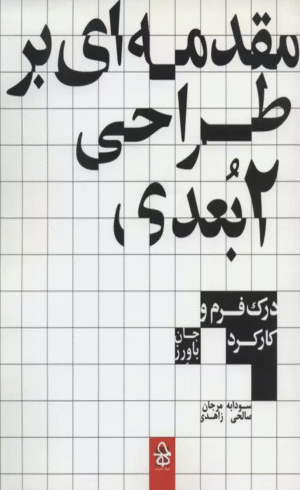 مقدمه‌ای بر
طراحی
۲بُعدی
درک فرم و
کارکرد
جان
باورز
سودابه صالحی
مرجان زاهدی